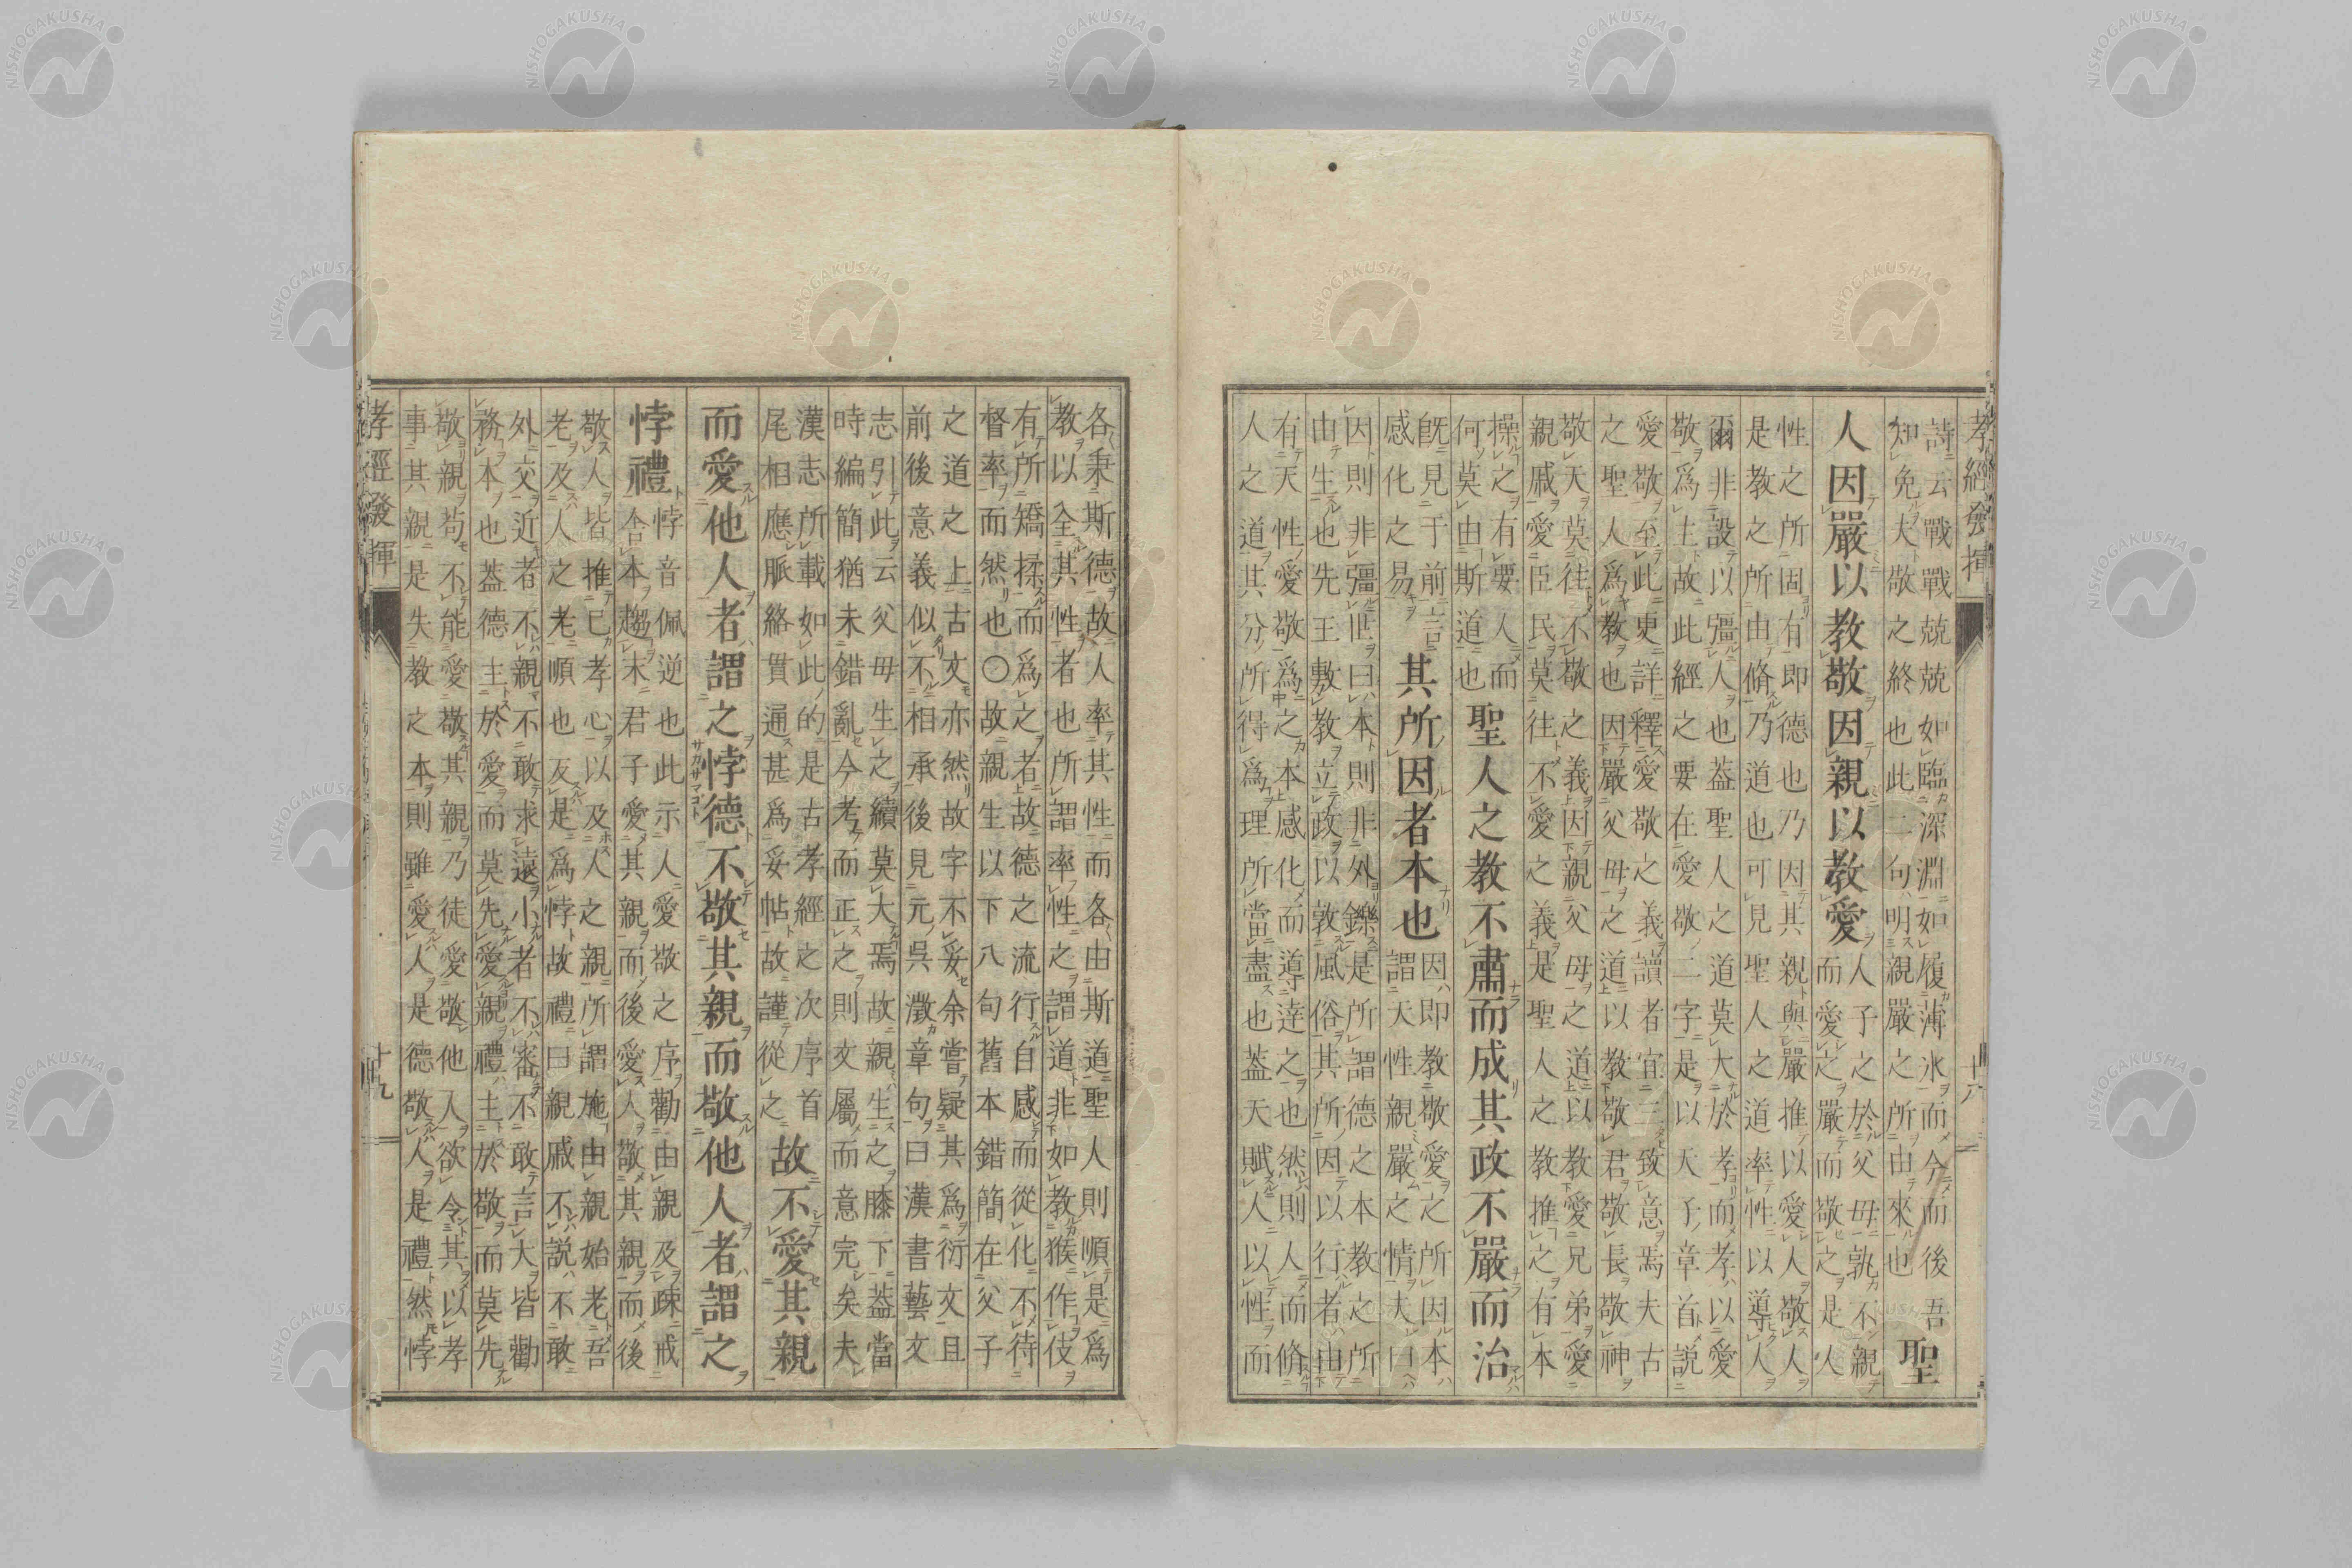 孝經發揮　十八
詩云戰戰兢兢如臨深淵如履薄冰而今而後吾
知免夫敬之終也此二句明親嚴之所由來也
聖
人因嚴以教敬因親以教愛
人予之於父母孰不親
而愛之嚴而敬之是人
性之所固有即德也乃因其親與嚴推以愛人敬人
是教之所由脩乃道也可見聖人之道率性以導人
爾非設以彊人也蓋聖人之道莫大於孝而孝以愛
敬為主故此經之要在愛敬二字是以天子章首説
愛敬至此更詳釋愛敬之義讀者宜三致意焉夫古
之聖人為教也因嚴父母之道以教敬君敬長敬神
敬天莫往不敬之義因親父母之道以教愛兄弟愛
親戚愛臣民莫往不愛之義是聖人之教推之有本
操之有要人而
何莫由斯道也
聖人之教不肅而成其政不嚴而治
既見于前言
感化之易
其所因者本也
因即教敬愛之所因本
謂天性親嚴之情夫曰
因則非彊世曰本則非外鑠是所謂德之本教之所
由生也先王敷教立政以敦風俗其所因以行者由
有天性愛敬為之本感化而導達之也然則人而脩
人之道其分所得為理所當盡也蓋天賦人以性而
各秉斯德故人率其性而各由斯道聖人則順是為
教以全其性者也所謂率性之謂道非如教猴作伎
有所矯揉而為之者故德之流行自感而從化不待
督率而然也〇故親生以下八句舊本錯簡在父子
之道之上古文亦然故字不妥余嘗疑其為衍文且
前後意義似不相承後見元吳澂章句曰漢書藝文
志引此云父母生之續莫大焉故親生之膝下蓋當
時編簡猶未錯亂今考而正之則文屬而意完矣夫
漢志所載如此的是古孝經之次序首
尾相應脈絡貫通甚為妥帖故謹從之
故不愛其親
而愛他人者謂之悖德不敬其親而敬他人者謂之
悖禮
悖音佩逆也此示人愛敬之序勸由親及疎戒
舎本趨末君子愛其親而後愛人敬其親而後
敬人皆推己孝心以及人之親所謂施由親始老吾
老及人之老順也反是為悖故禮曰親戚不説不敢
外交近者不親不敢求遠小者不審不敢言大皆勸
務本也蓋德主於愛而莫先愛親禮主於敬而莫先
敬親苟不能愛敬其親乃徒愛敬他人欲令其以孝
事其親是失教之本則雖愛人是德敬人是禮然悖
孝經發揮　十九